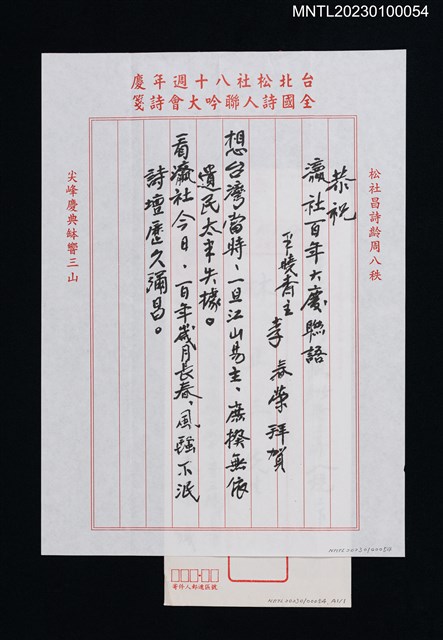 MNTL20230100054
台北松社八十週年慶
全國詩人聯吟大會詩箋
松社昌詩齡周八秩
恭祝
瀛社百年大慶聯語
李春榮拜賀
想台灣當時、一旦江山易主、庶揆無依
遺民太半失據。
看瀛社今日、百年歲月長春、風騷不泯
詩壇歷久彌昌。
尖峰慶典缽響三山
MNTL20230100054
寄件人郵遞區號
MNTL20230100054 A1/1